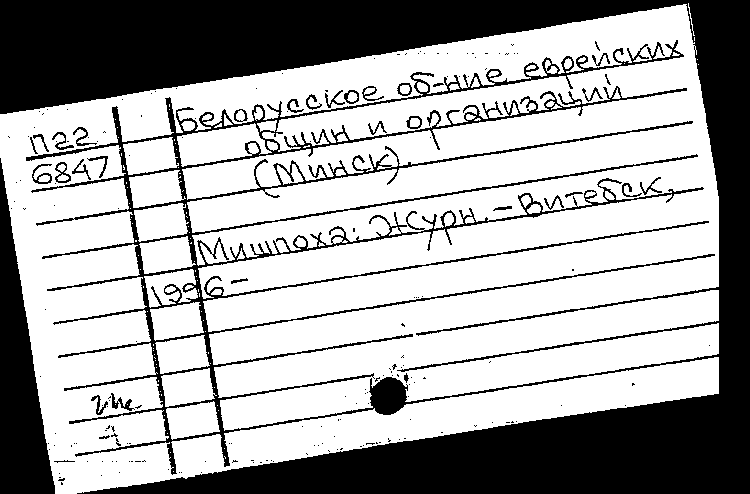 П22 Белорусское об-ние еврейских
6847 общин и организаций
(Минск).
Мишпоха: Журн. – Витебск,
1996 –